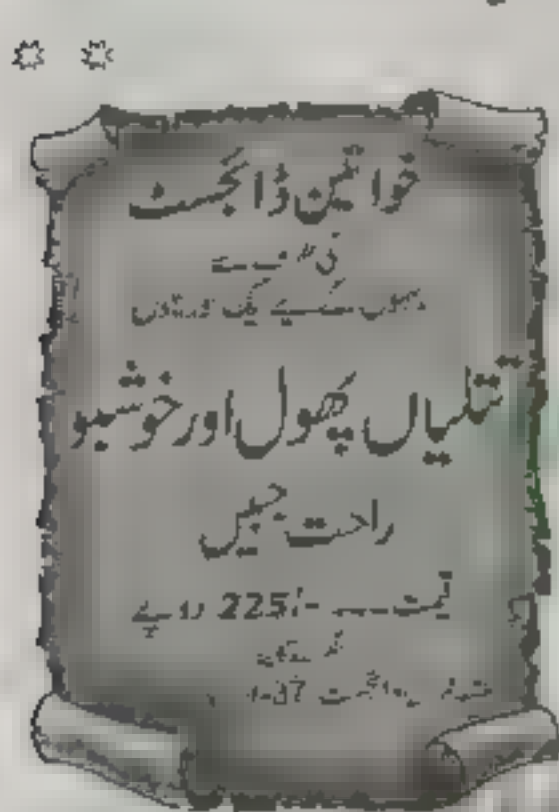 خواتین ڈائجسٹ
کی طرف سے
بہنوں کے لیے ایک اور ناول
تتلیاں پھول اور خوشبو
راحت جبیں
قیمت --- /-225 روپے
ڈائجسٹ 37-